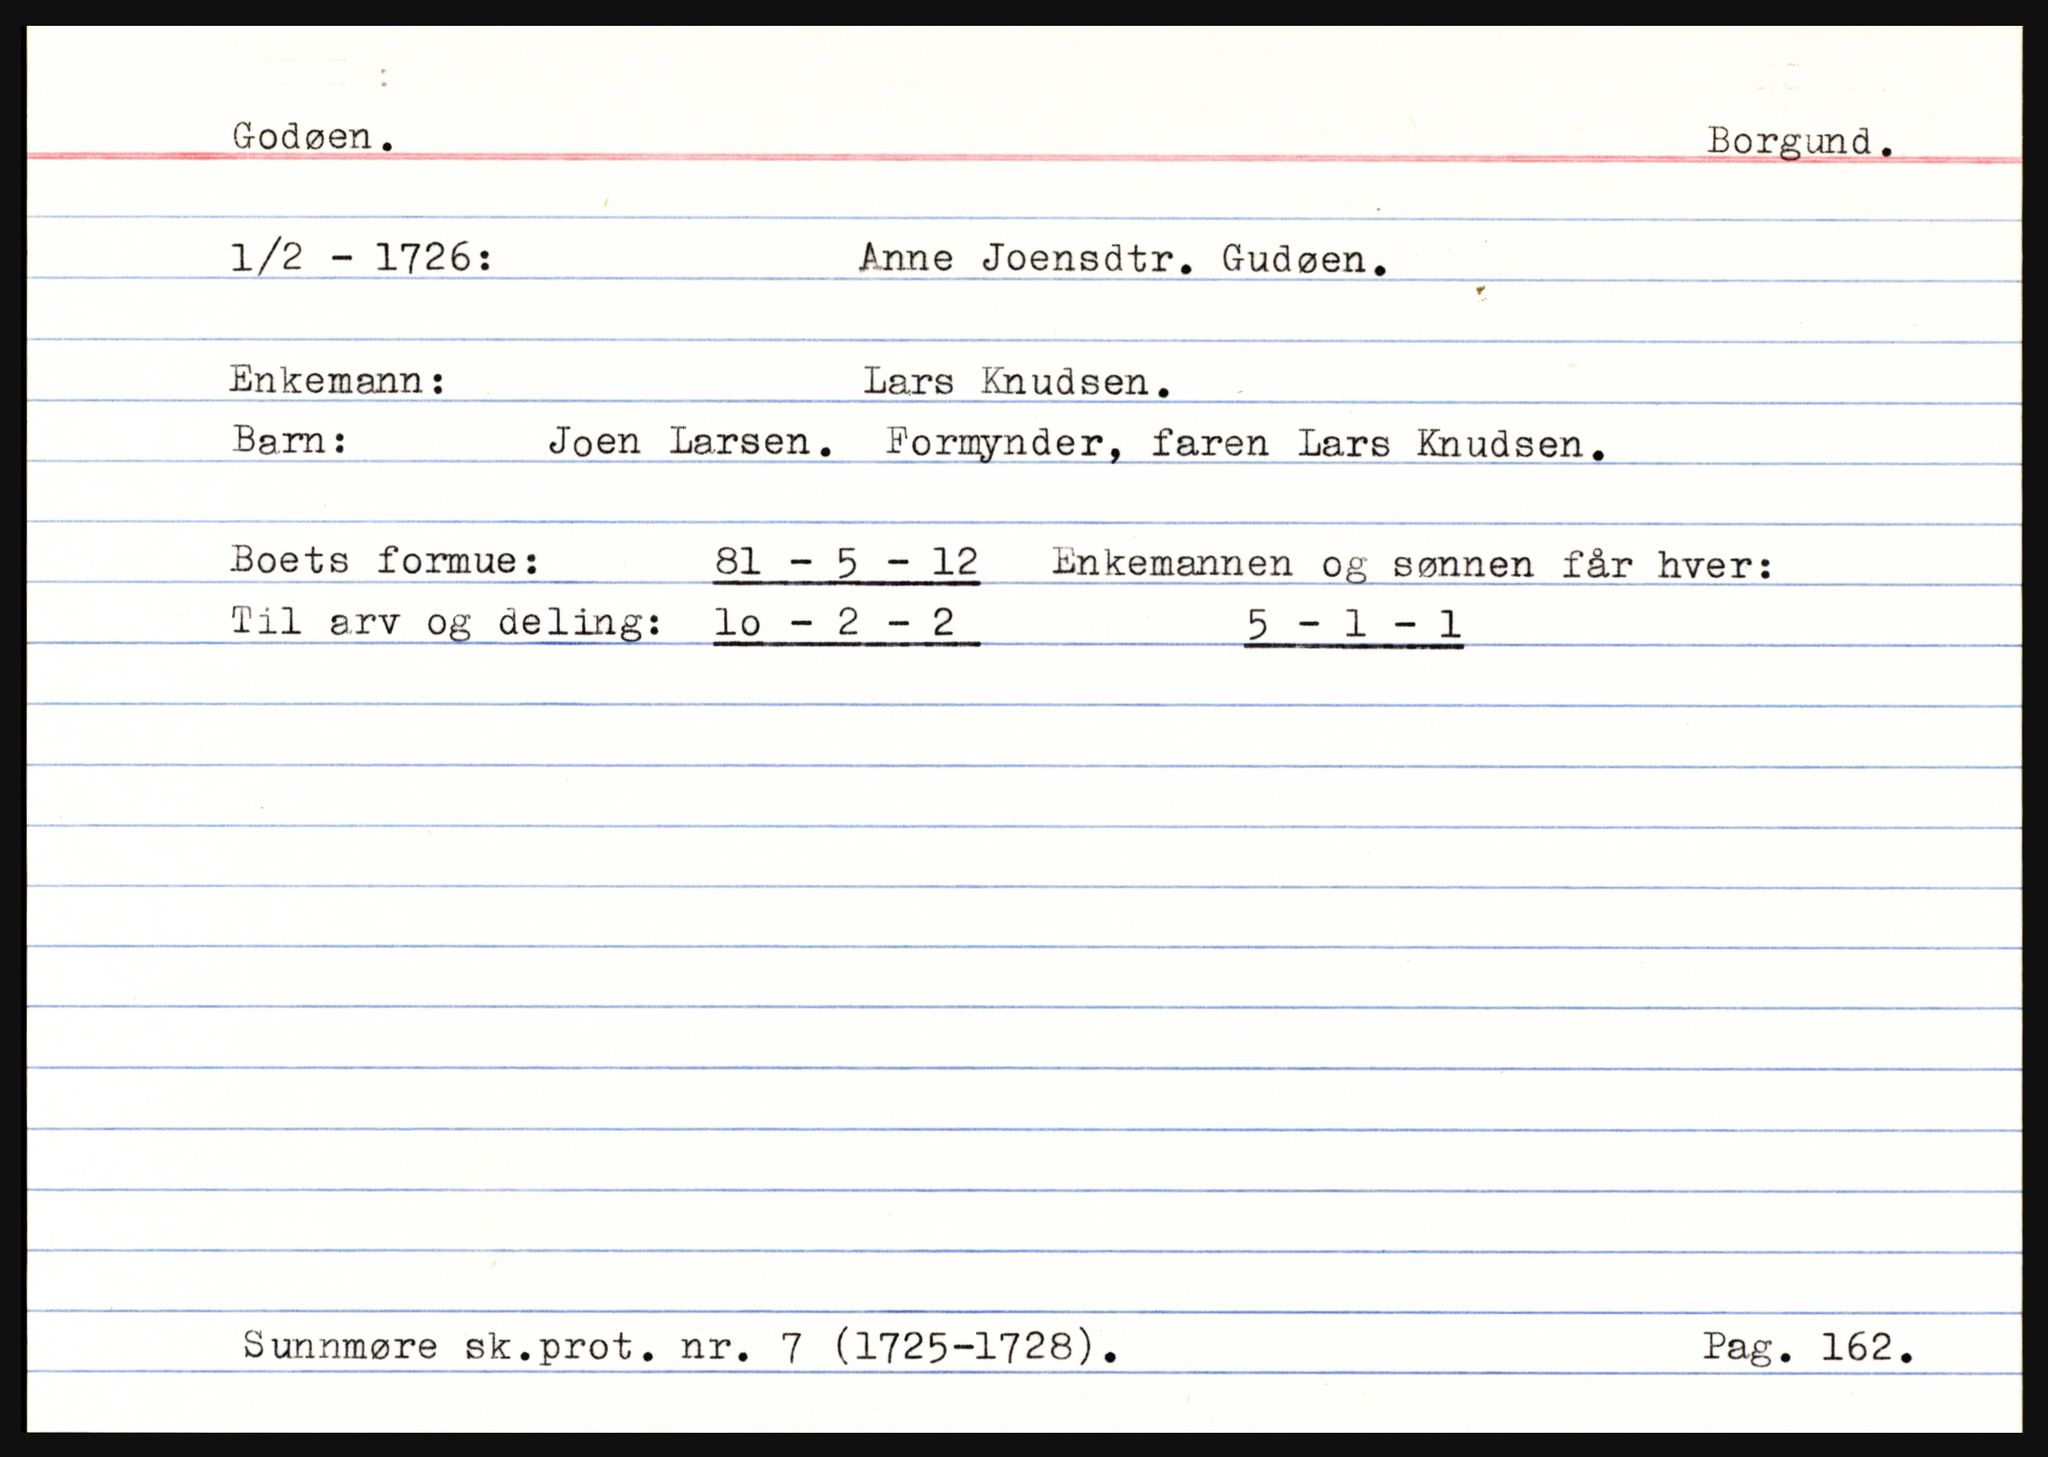 Godøen. Borgund.
1/2 - 1726: Anne Joensdtr. Gudøen.
Enkemann: Lars Knudsen.
Barn: Joen Larsen. Formynder, faren Lars Knudsen.
Boets formue: 81 - 5 - 12 Enkemannen og sønnen får hver:
Til arv og deling: lo - 2 - 2 5 - 1 - 1
Sunnmøre sk.prot. nr. 7 (1725-1728). Pag. 162.